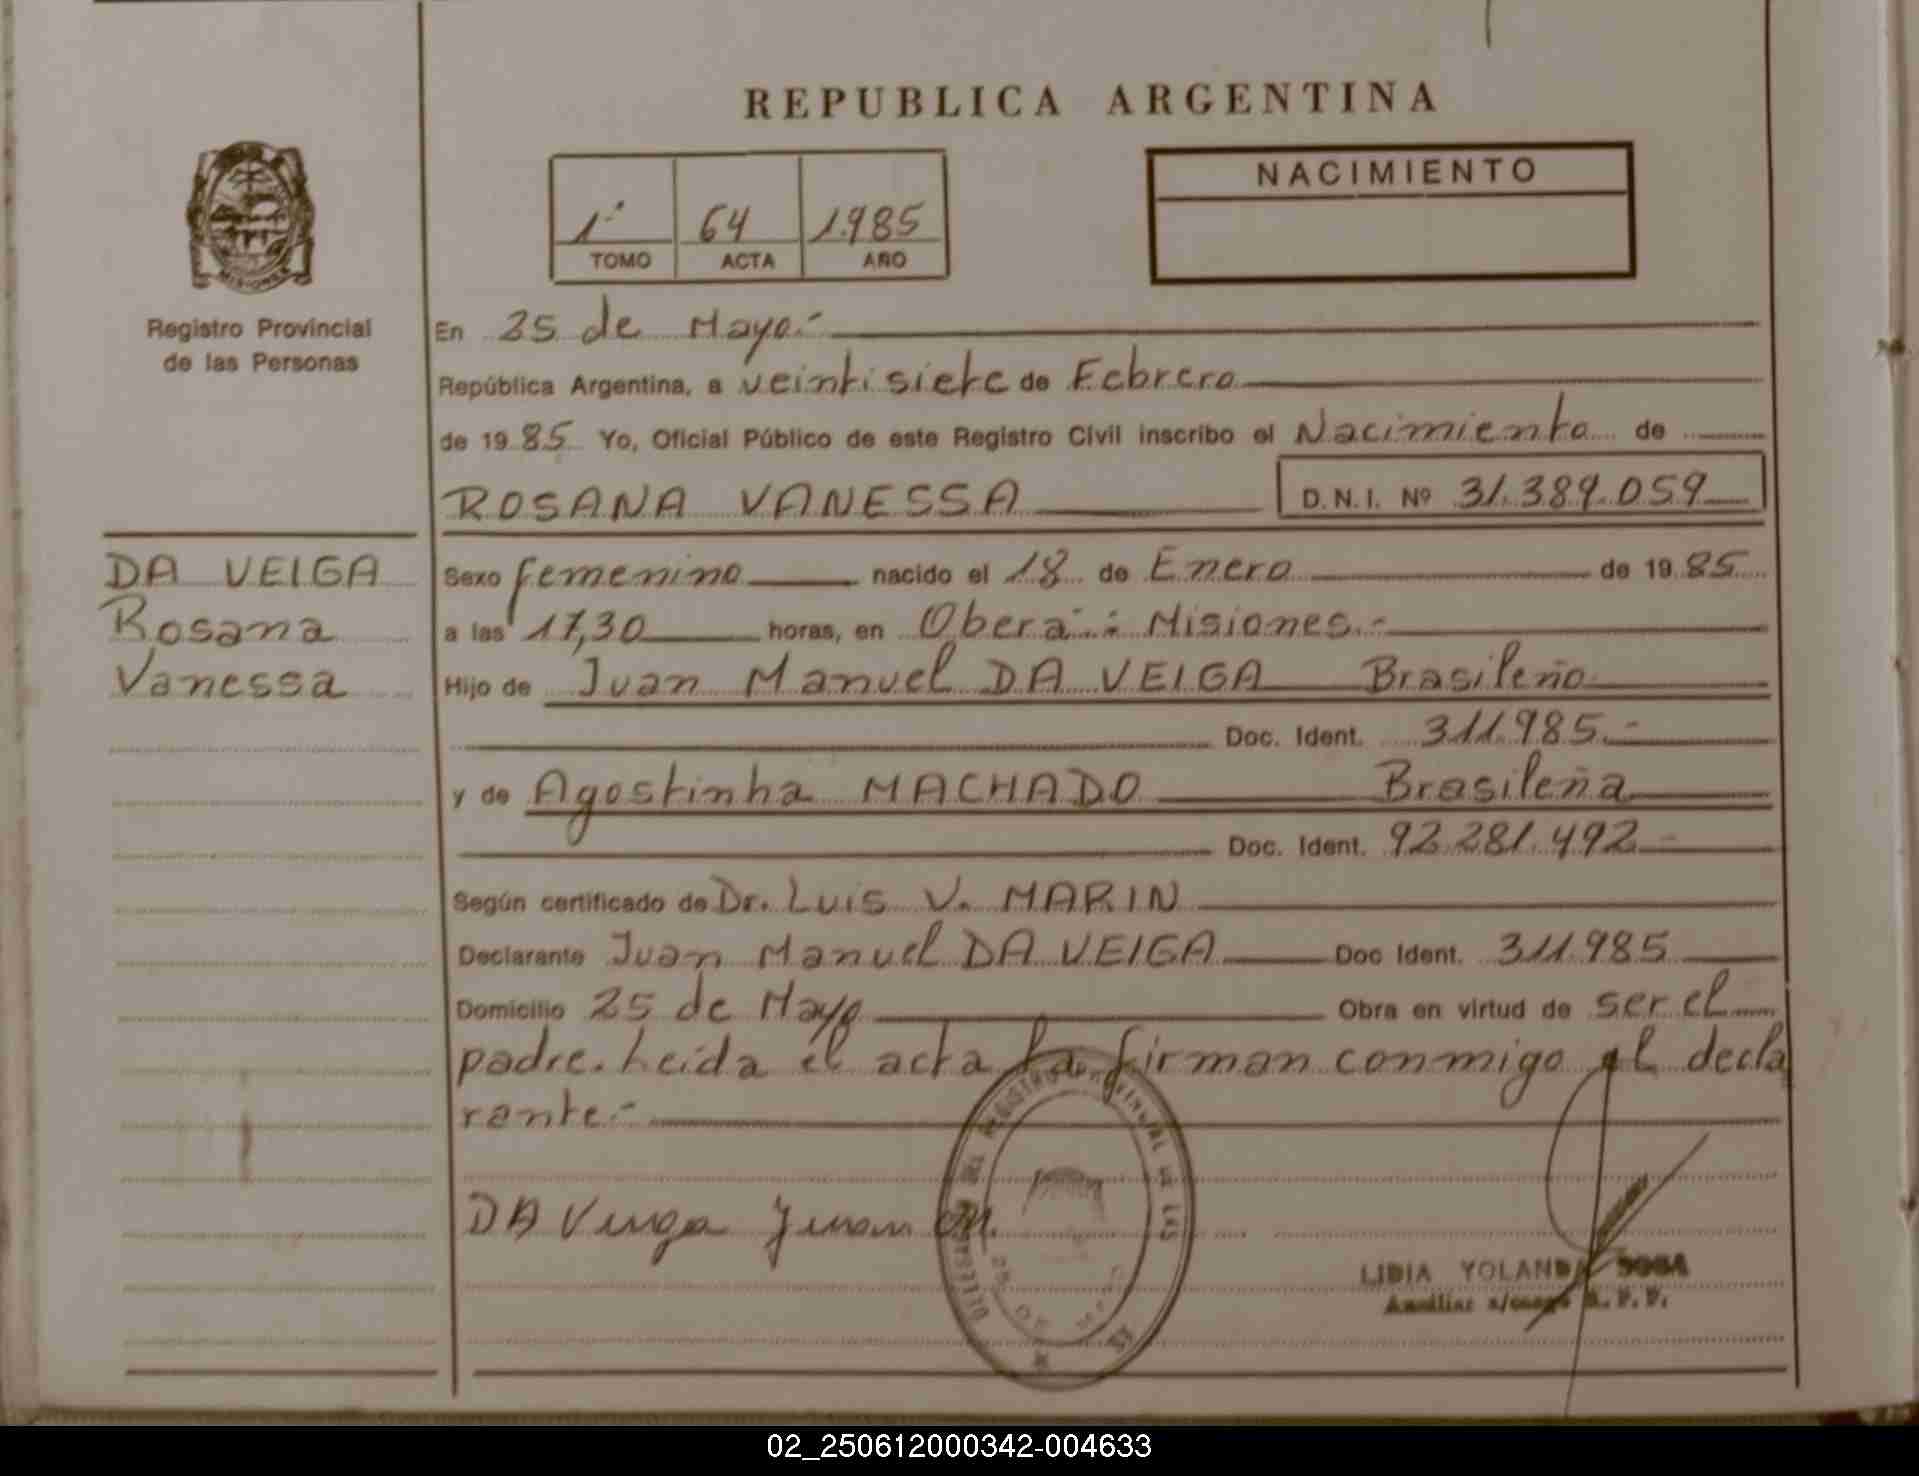 REPUBLICA ARGENTINA
NACIMIENTO
1º 64 1.985
TOMO ACTA AÑO
MISIONES
Registro Provincial
de las Personas
En 25 de Mayo.-
República Argentina, a veintisiete de Febrero
de 19 85 Yo, Oficial Público de este Registro Civil inscribo el Nacimiento de
ROSANA VANESSA D.N.I. Nº 31.389.059
DA VEIGA
Rosana
Vanessa
Sexo femenino nacido el 18 de Enero de 19 85
a las 17,30 horas, en Oberá.: Misiones.-
Hijo de Juan Manuel DA VEIGA Brasileño
Doc. Ident. 311.985.-
y de Agostinha MACHADO Brasileña
Doc. Ident. 92.281.492.-
Según certificado de Dr. Luis V. MARIN
Declarante Juan Manuel DA VEIGA Doc Ident. 311.985
Domicilio 25 de Mayo Obra en virtud de ser el
padre. Leída el acta la firman conmigo el decla
rante.-
DA Veiga Juan M.
REGISTRO PROVINCIAL DE LAS
25 DE MAYO
LIDIA YOLANDA SOSA
Auxiliar
02_250612000342-004633